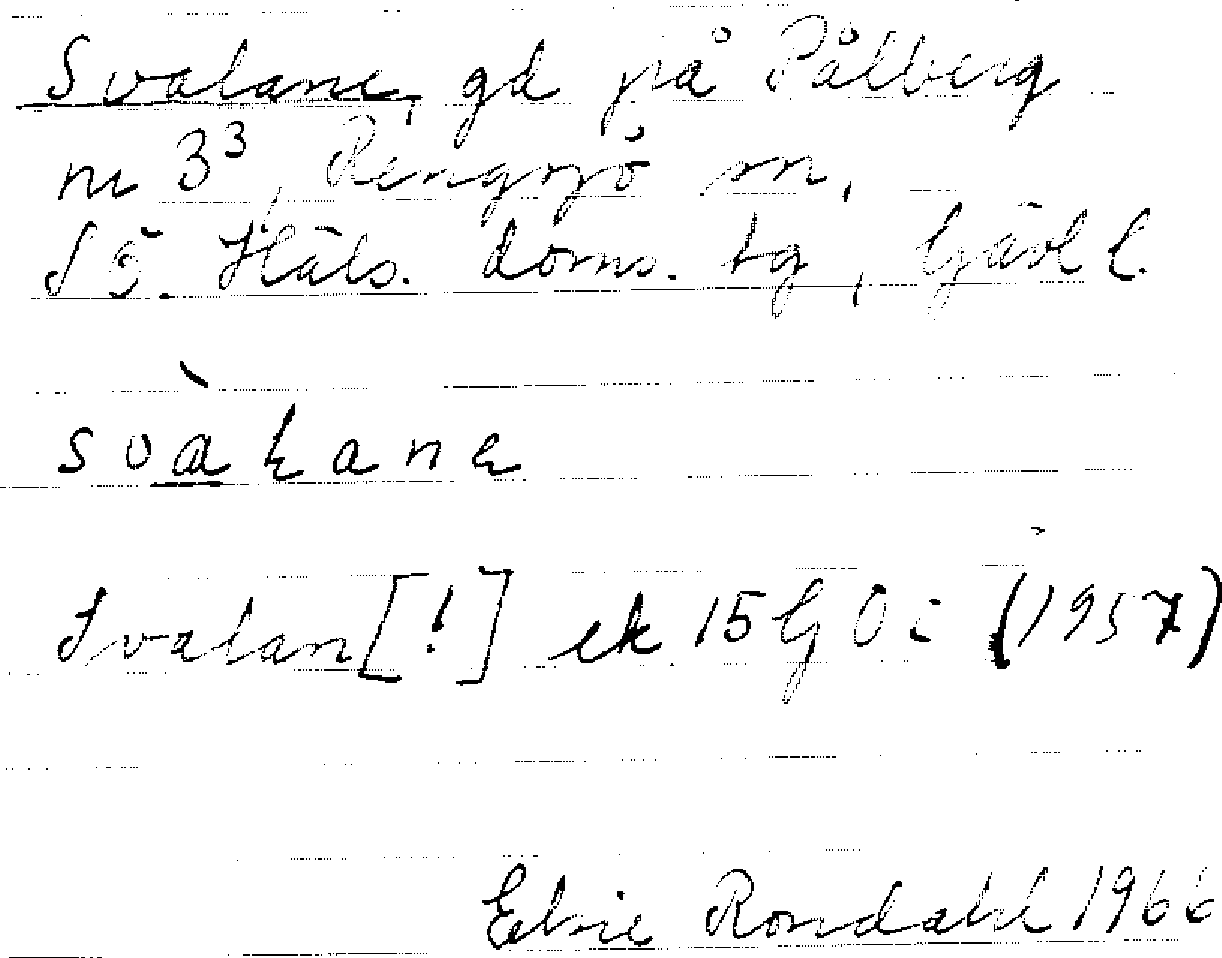 Svalane, gd på Pålberg
nr 3³, Rengsjö sn,
SÖ. Häls. doms. tg, Gävl l.
svàlane
Svalan [!] ek 15G 0i (1957)
Elsie Rondahl 1966